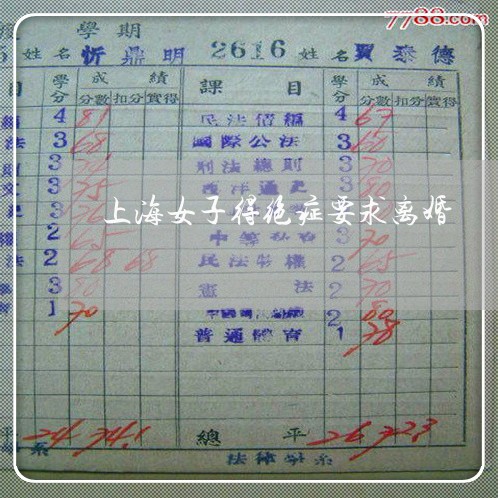 7788.com
學期
姓名 忻鼎明 2616 姓名 賈泰德
目 學分 成績 課目 學分 成績
分數 扣分 實得 分數 扣分 實得
4 81 民法債編 4 67
法 3 68 國際公法 3 60
3 刑法總則 3 70
3 75 西洋通史 3 80
3
上海女子得绝症要求离婚
2 65 3 70
法 2 68 68 民法物權 2 65
3 80 憲法 2 70
1 70 2 80
普通體育 1 78
平 24 74.1 總平 26 72.3
系 法律學系